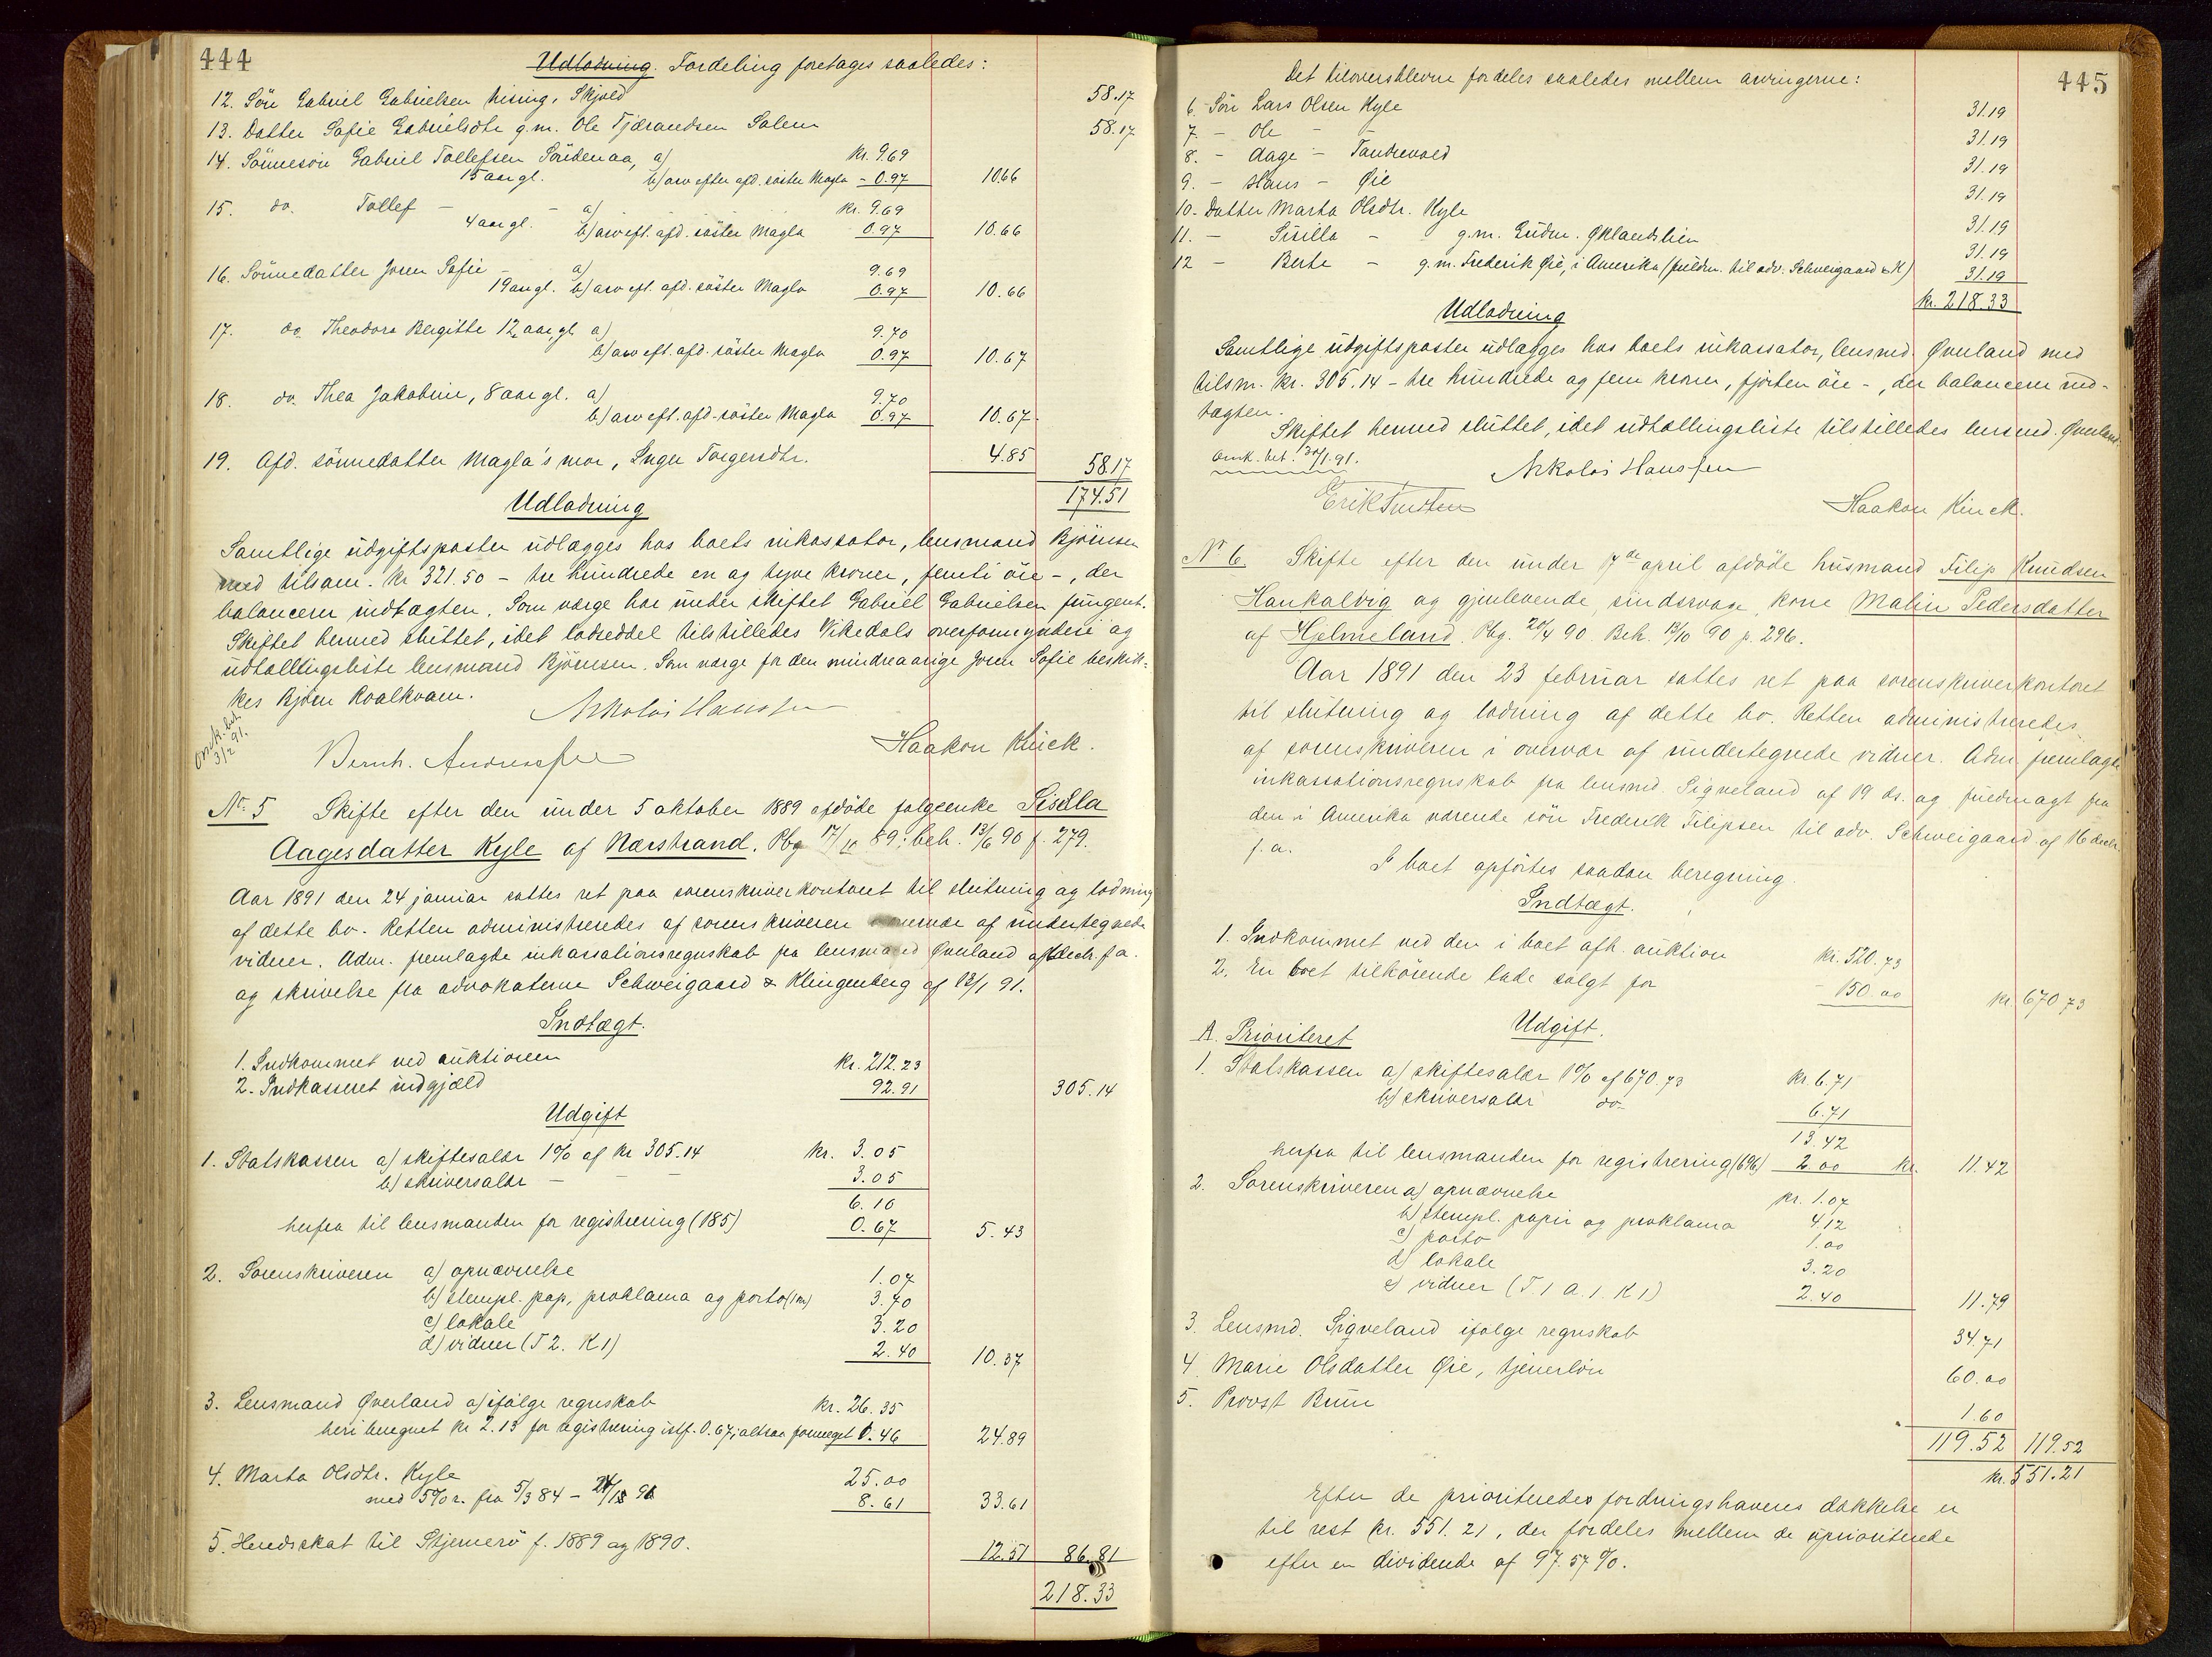 444
Udlodning. Fordeling foretages saaledes:
12. Søn Gabriel Gabrielsen Kising, Skjold 58.17
13. Datter Sofie Gabrielsdtr g.m. Ole Tjærandsen Salem 58.17
14. Sönnesön Gabriel Tollefsen Söndenaa, a) kr. 9.69
15 aar gl. b) arv efter afd. söster Magla - 0.97 10.66
15. do. Tollef - - a) kr. 9.69
4 aar gl. b) arv eft. afd. söster Magla 0.97 10.66
16. Sönnedatter Joren Sofie - a) 9.69
19 aar gl. b) arv eft. afd. söster Magla 0.97 10.66
17. do. Theodora Bergitte 12 aar gl. a) 9.70
b) arv eft. afd. söster Magla 0.97 10.67
18. do. Thea Jakobine, 8 aar gl. a) 9.70
b) arv eft. afd. söster Magla 0.97 10.67
19. Afd. sönnedatter Magla's mor, Inger Torgersdtr. 4.85 58.17
174.51
Udlodning
Samtlige udgiftsposter udlægges hos boets inkassator, lensmand Bjömsen
med tilsam. kr 321.50 - tre hundrede en og tyve kroner, femti öre -, der
balancerer indtægten. Som værge har under skiftet Gabriel Gabrielsen fungert.
Skiftet hermed sluttet, idet lodseddel tilstilledes Vikedals overformynderi og
udtællingsliste lensmand Bjömsen. Som værge for den mindreaarige Joren Sofie beskik-
kes Björn Roalkvam.
Nikolai Hanssen
Omk. bet. 3/2 91.
Bernh. Andreassen Haakon Kinck.
No. 5 Skifte efter den under 5 oktober 1889 afdöde folgeenke Sisilla
Aagesdatter Kyle af Nærstrand. Pbg 17/10 89; beh. 13/6 90 p. 279.
Aar 1891 den 24 januar sattes ret paa sorenskriverkontoret til slutning og lodning
af dette bo. Retten administreredes af sorenskriveren i overvær af undertegnede
vidner. Adm. fremlagde inkassationsregnskab fra lensmand Øverland af decbr. f.a.
og skrivelse fra advokaterne Schweigaard & Klingenberg af 13/1 91.
Indtægt.
1. Indkommet ved auktionen kr. 212.23
2. Indkasseret indgjæld 92.91 305.14
Udgift
1. Statskassen a) skiftesalær 1% af kr 305.14 kr. 3.05
b) skriversalær - - - 3.05
6.10
herfra til lensmanden for registrering (185) 0.67 5.43
2. Sorenskriveren a) opnævnelse 1.07
b) stempl. pap., proklama og porto (1 m) 3.70
c) lokale 3.20
d) vidner (T 2. K 1) 2.40 10.37
3. Lensmand Øverland a) ifölge regnskab kr. 26.35
heri beregnet kr 2.13 for registrering istf. 0.67, altsaa formeget 1.46 24.89
4. Marta Olsdtr. Kyle 25.00
med 5% r. fra 5/3 84 - 24/1 91 8.61 33.61
5. Herredsskat til Stjernerö f. 1889 og 1890. 12.51 86.81
218.33
445
Det tiloversblevne fordeles saaledes mellem arvingerne:
6. Sön Lars Olsen Kyle 31.19
7. - Ole - - 31.19
8. - Aage - Tandrevold 31.19
9. - Hans - Øie 31.19
10. Datter Marta Olsdtr. Kyle 31.19
11. - Sisilla - g.m. Gudm. Øklandslien 31.19
12 - Berte - g.m. Frederik Øie, i Amerika (fuldm. til adv. Schweigaard & K) 31.19
kr. 218.33
Udlodning
Samtlige udgiftsposter udlægges hos boets inkassator, lensmd. Øverland med
tilsm. kr. 305.14 - tre hundrede og fem kroner, fjorten öre -, der balancerer ind-
tægten.
Skiftet hermed sluttet, idet udtællingsliste tilstilledes lensmd. Øverland.
Omk. bet. 30/1 91.
Nikolai Hanssen
Erik Knutsen Haakon Kinck.
No 6. Skifte efter den under 17de april afdöde husmand Filip Knudsen
Haukalvig og gjenlevende, sindssvage kone Malin Pedersdatter
af Hjelmeland. Pbg. 20/4 90. Beh. 13/10 90 p. 296.
Aar 1891 den 23 februar sattes ret paa sorenskriverkontoret
til slutning og lodning af dette bo. Retten administreredes
af sorenskriveren i overvær af undertegnede vidner. Adm. fremlagde
inkassationsregnskab fra lensmd. Sigveland af 19 ds. og fuldmagt fra
den i Amerika værende sön Frederik Filipsen til adv. Schweigaard af 16 decbr.
f.a.
I boet opförtes saadan beregning.
Indtægt.
1. Indkommet ved den i boet afh. auktion kr. 520.73
2. En boet tilhörende lade solgt for - 150.00 kr. 670.73
Udgift.
A. Prioriteret
1. Statskassen a) skiftesalær 1% af 670.73 kr. 6.71
b) skriversalær do- 6.71
13.42
herfra til lensmanden for registrering (696) 2.00 kr. 11.42
2. Sorenskriveren a) opnævnelse kr. 1.07
b) stempl. papir og proklama 4.12
c) porto 1.00
d) lokale 3.20
e) vidner (T 1 A. 1. K 1) 2.40 11.79
3. Lensmd. Sigveland ifölge regnskab 34.71
4. Marie Olsdatter Øie, tjenerlön 60.00
5. Provst Brun 1.60
119.52 119.52
kr. 551.21
Efter de prioriteredes fordringshaveres dækkelse er
til rest kr. 551.21, der fordeles mellem de uprioriterede
efter en dividende af 97.57%.